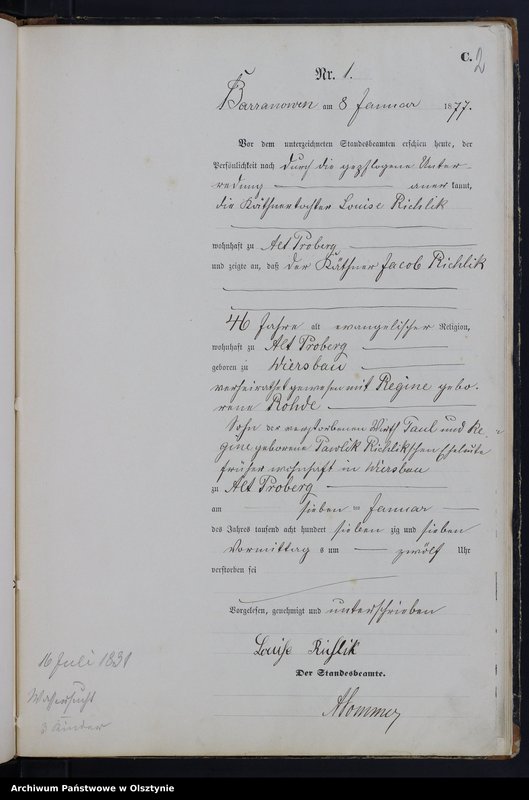 C. 2
Nr. 1.
Barranowen am 8 Januar 1877.
Vor dem unterzeichneten Standesbeamten erschien heute, der
Persönlichkeit nach durch die gepflogene Unter-
redung anerkannt,
die Käthnertochter Louise Richlik
wohnhaft zu Alt Proberg
und zeigte an, daß der Käthner Jacob Richlik
46 Jahre alt evangelischer Religion,
wohnhaft zu Alt Proberg
geboren zu Wiersbau
verheirathet gewesen mit Regine gebo-
rene Rohde
Sohn der verstorbenen Wirth Paul und Re-
gine geborene Pawlik Richlikschen Eheleute
früher wohnhaft in Wiersbau
zu Alt Proberg
am sieben ten Januar
des Jahres tausend acht hundert sieben zig und sieben
Vormittag s um zwölf Uhr
verstorben sei
Vorgelesen, genehmigt und unterschrieben
Louise Richlik
Der Standesbeamte.
16 Juli 1831
Wassersucht
3 Kinder
Archiwum Państwowe w Olsztynie